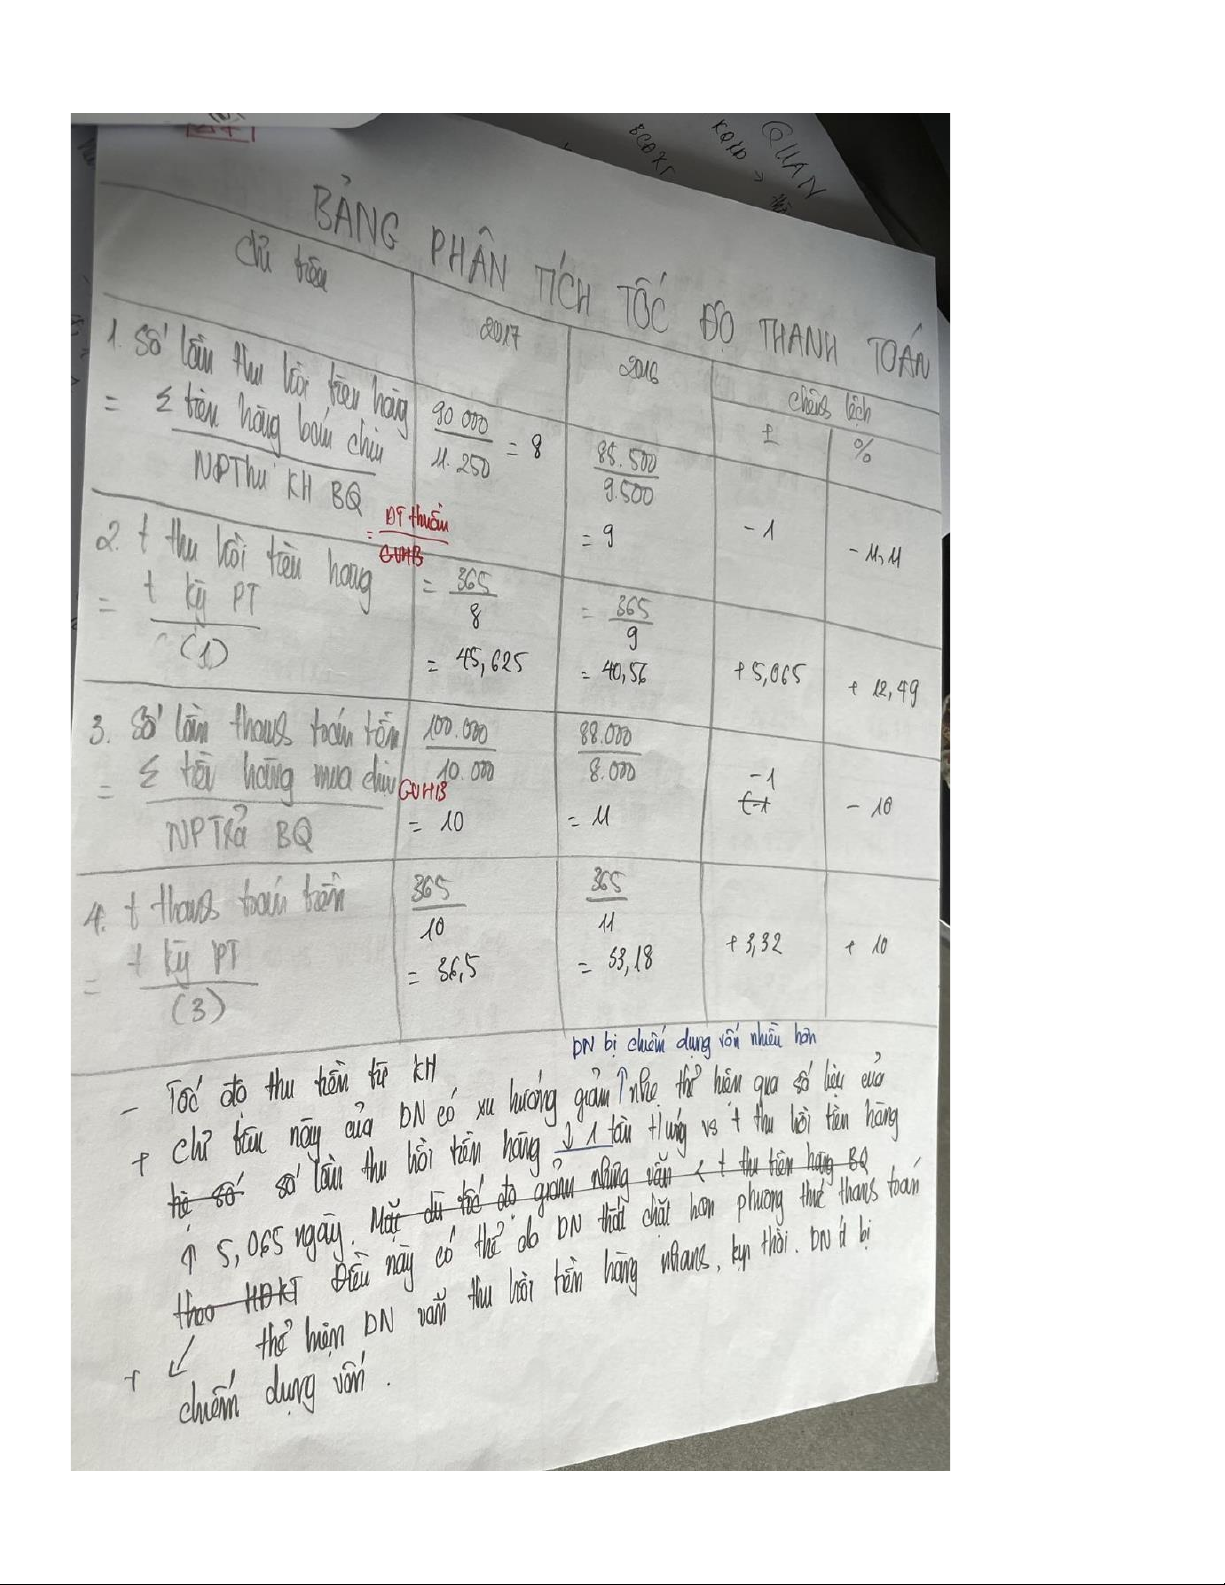 QUAN
KQKD >
BCĐKT
BẢNG PHÂN TÍCH TỐC ĐỘ THANH TOÁN
Chỉ tiêu
2017
2016
Chênh lệch
±
%
1. Số lần thu hồi tiền hàng
= Σ tiền hàng bán chịu
NPThu KH BQ
90 000
11.250
= 8
85.500
9.500
= 9
- 1
- 11,11
= DT thuần
GVHB
2. t thu hồi tiền hàng
= t kỳ PT
(1)
= 365
8
= 45,625
= 365
9
= 40,56
+ 5,065
+ 12,49
3. Số lần thanh toán tiền
= Σ tiền hàng mua chịu GVHB
NPTrả BQ
100.000
10.000
= 10
88.000
8.000
= 11
- 1
- 10
4. t thanh toán tiền
= t kỳ PT
(3)
365
10
= 36,5
365
11
= 33,18
+ 3,32
+ 10
DN bị chiếm dụng vốn nhiều hơn
- Tốc độ thu tiền từ KH
+ Chỉ tiêu này của DN có xu hướng giảm ↑ nhẹ thể hiện qua số liệu của
hệ số số lần thu hồi tiền hàng ↓ 1 lần tứ ứng vs t thu hồi tiền hàng
↑ 5,065 ngày. Mặc dù tốc độ giảm nhưng vẫn < t thu tiền hàng BQ
theo HĐKT Điều này có thể do DN thắt chặt hơn phương thức thanh toán
+ ↙ thể hiện DN vẫn thu hồi tiền hàng nhanh, kịp thời. DN ít bị
chiếm dụng vốn.